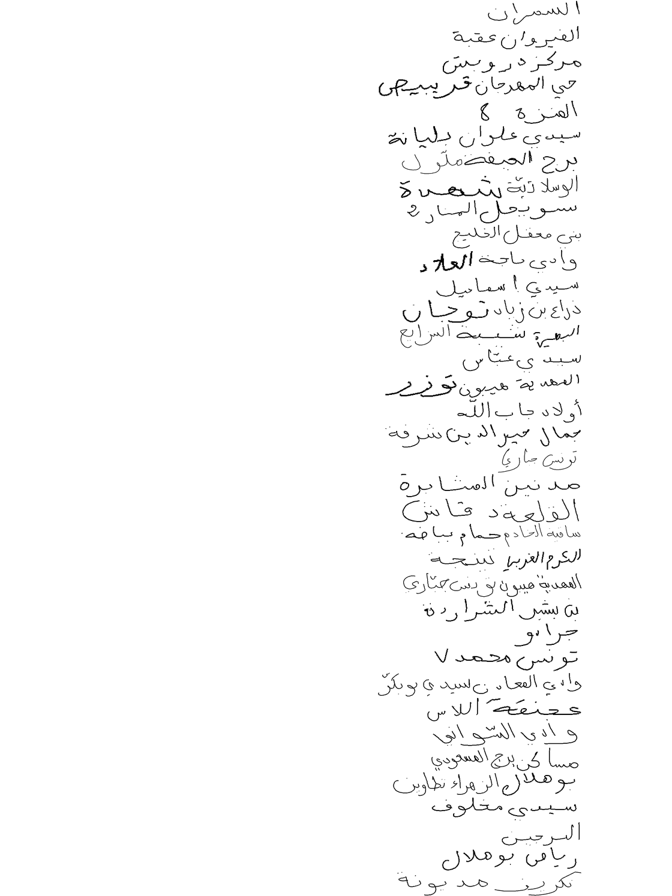 السمران
القيروان عقبة
مركز درويش
حي المهرجان قريبيص
المنزه 8
سيدي علوان بليانة
برج الحفصة ملول
الوسلاتية شهدة
سويحل المنار 2
بني معقل الخليج
وادي باجة العلاد
سيدي اسماعيل
ذراع بن زياد توجان
البطيرة شبيبة السرايع
سيدي عباس
المهدية هيبون توزر
أولاد جاب الله
جمال خير الدين شرفة
تونس جاري
مدنين المشايرة
القلعة دقاش
ساقية الخادم حمام بياضة
الكرم الغربي نبيجة
المهدية هيبون تونس حشاري
بن بشير الشراردة
جرانو
تونس محمد V
وادي المعادن سيدي بوبكر
عجنقة اللاس
وادي السواني
مساكن برج المسعودي
بوهلال الزهراء تطاوين
سيدي مخلوف
البرجين
رياض بوهلال
تكريف مديونة